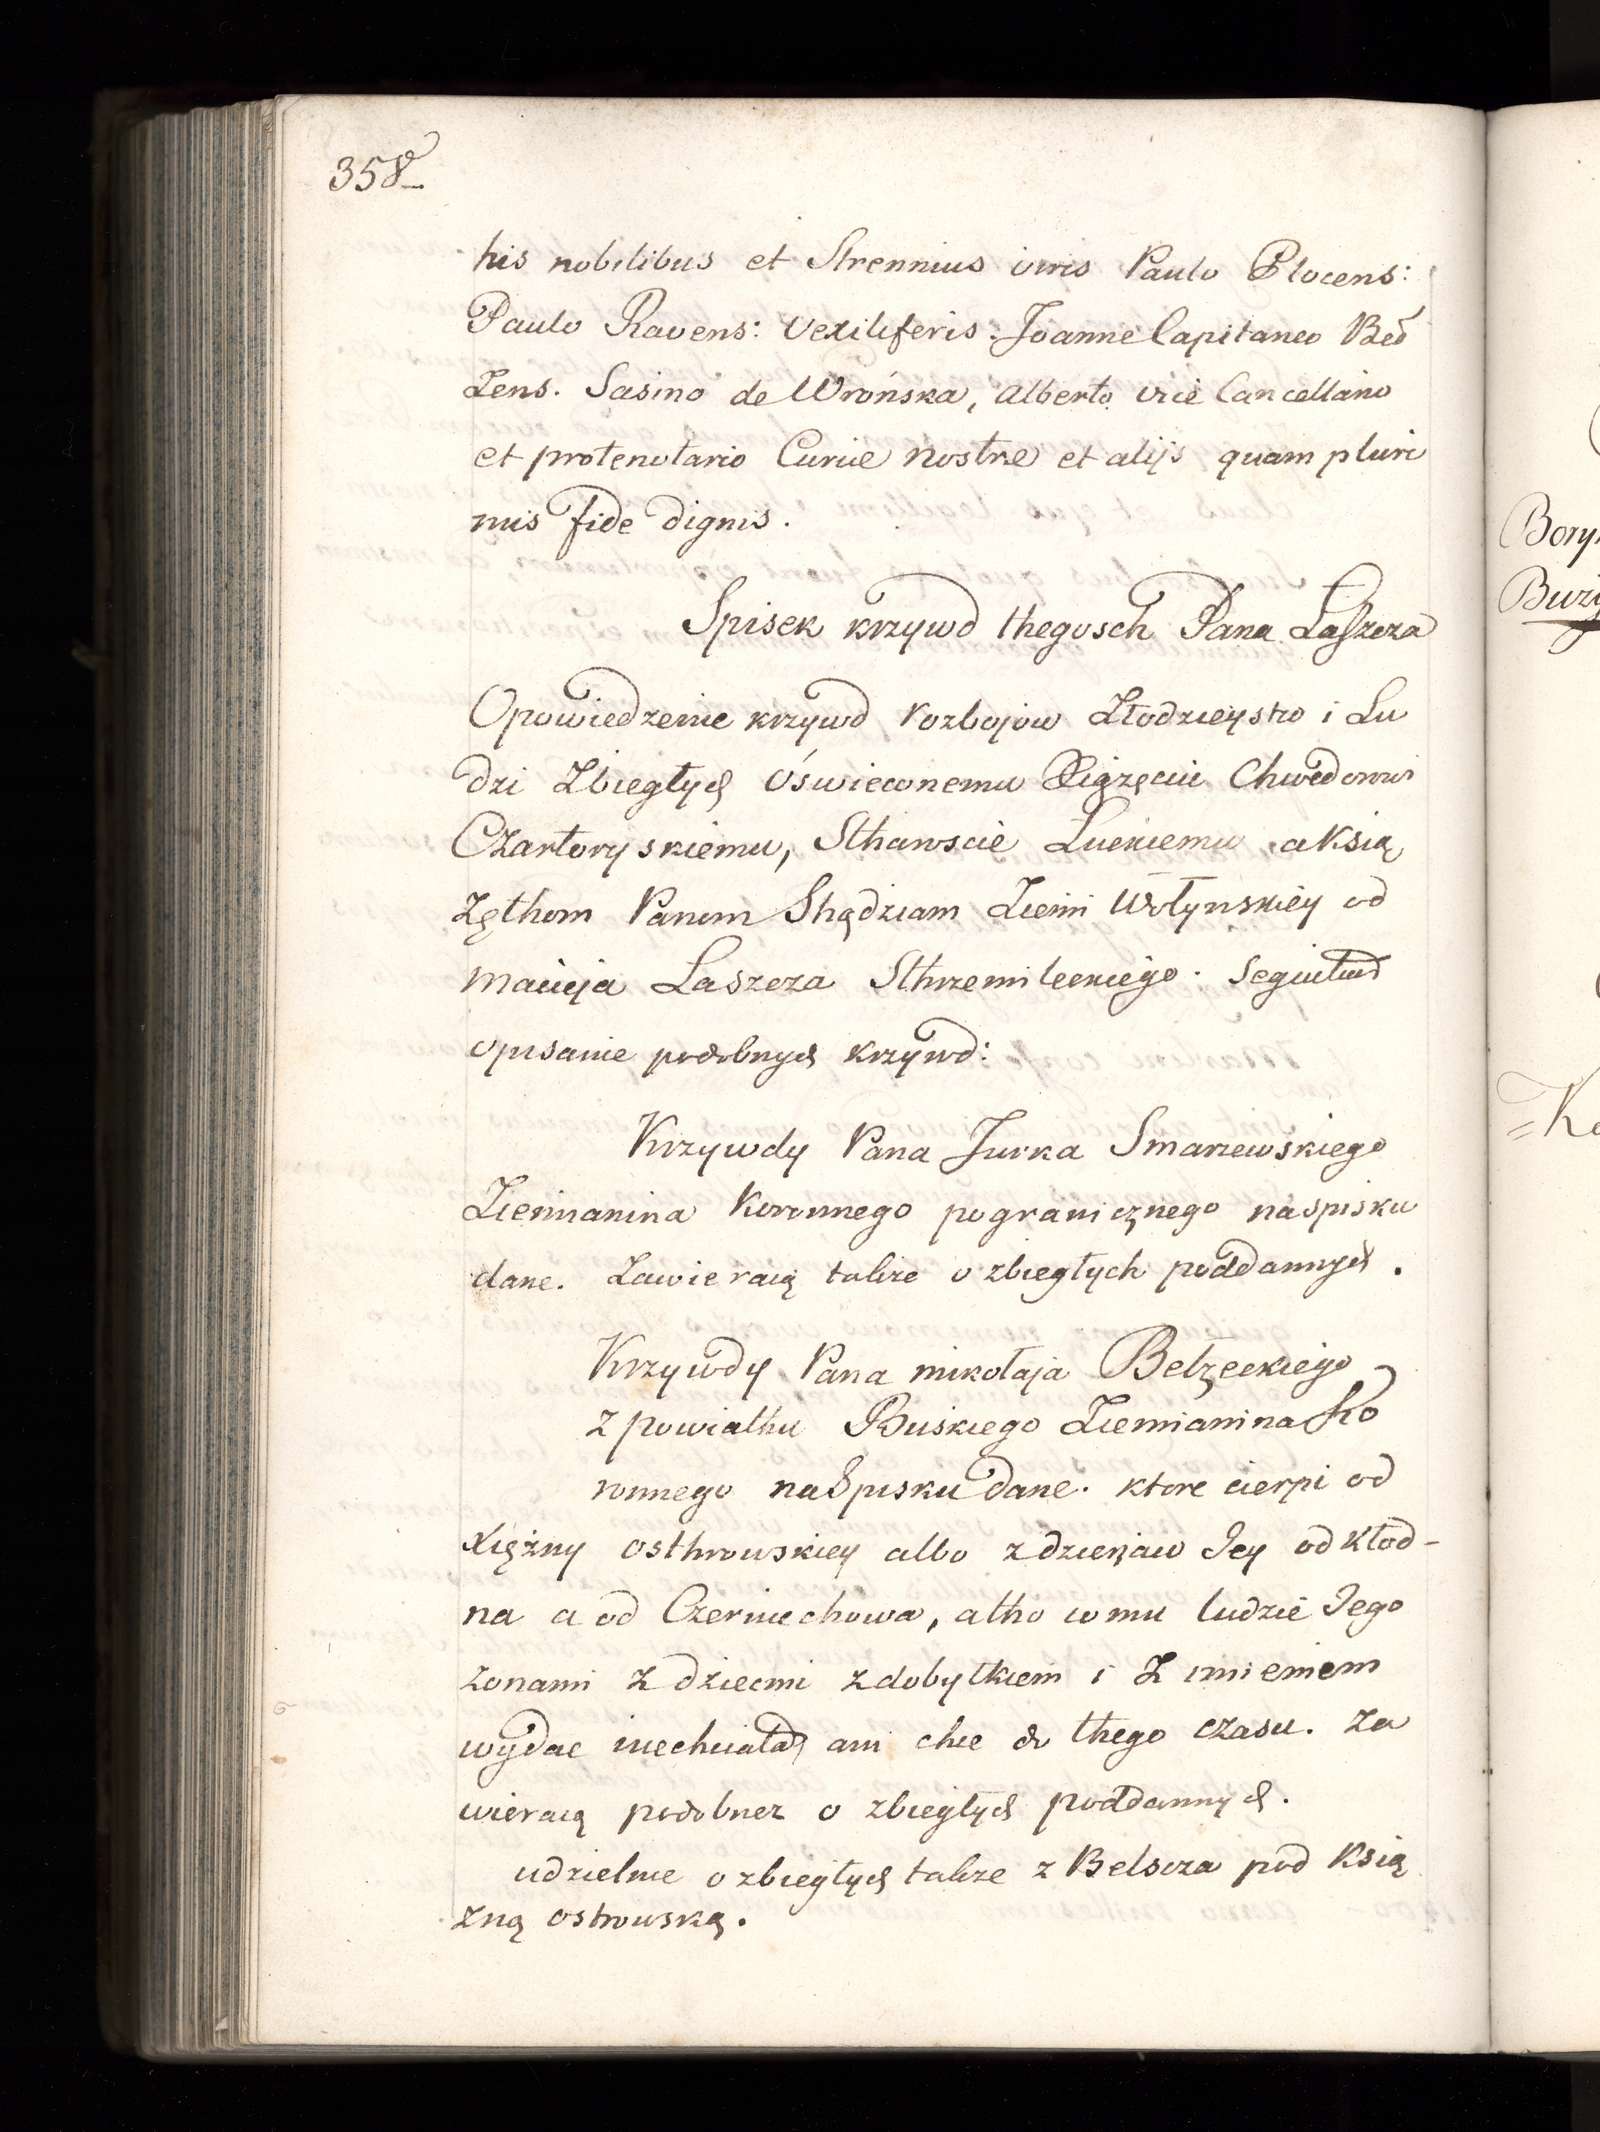 358
his nobilibus et Strennius viris Paulo Plocens:
Paulo Ravens: Vexiliferis. Joanne Capitaneo Beł
Zens. Sasino de Wrońska, Alberto vice Cancellario
et protenotario Curie Nostre et alijs quam pluri
mis fide dignis.
Spisek krzywd thegosch Pana Laszcza
Opowiedzenie krzywd rozbojow Złodzieystw i Lu
dzi Zbiegłych Oświeconemu Xiążęciu Chwedorowi
Czartoryskiemu, Stharoscie Luckiemu a Ksią
Zęthom Panom Shędziam Ziemi Wołynskiéy od
Macieja Laszcza Sthrzemileckiego. Seguitur
opisanie podobnych krzywd:
Krzywdy Pana Jurka Smarzewskiego
Ziemianina Koronnego pogranicznego na spisku
dane. Zawieraią także o zbiegłych poddannych.
Krzywdy Pana Mikołaja Bełzeckiego
z powiathu Buskiego Ziemianina Ko
ronnego na Spisku dane. ktore cierpi od
Xiężny osthrowskiey albo z dzierżaw Jey od Kłod-
na a od Czerniechowa, atho iemu ludzie Jego
zonami z dziecmi z dobytkiem i z imieniem
wydac niechciała ani chce do thego czasu. Za
wieraią podobnez o zbiegłych poddannych.
udzielnie o zbiegłych także z Belscza pod Ksią
żną ostrowską.
Bory
Buzy
=K